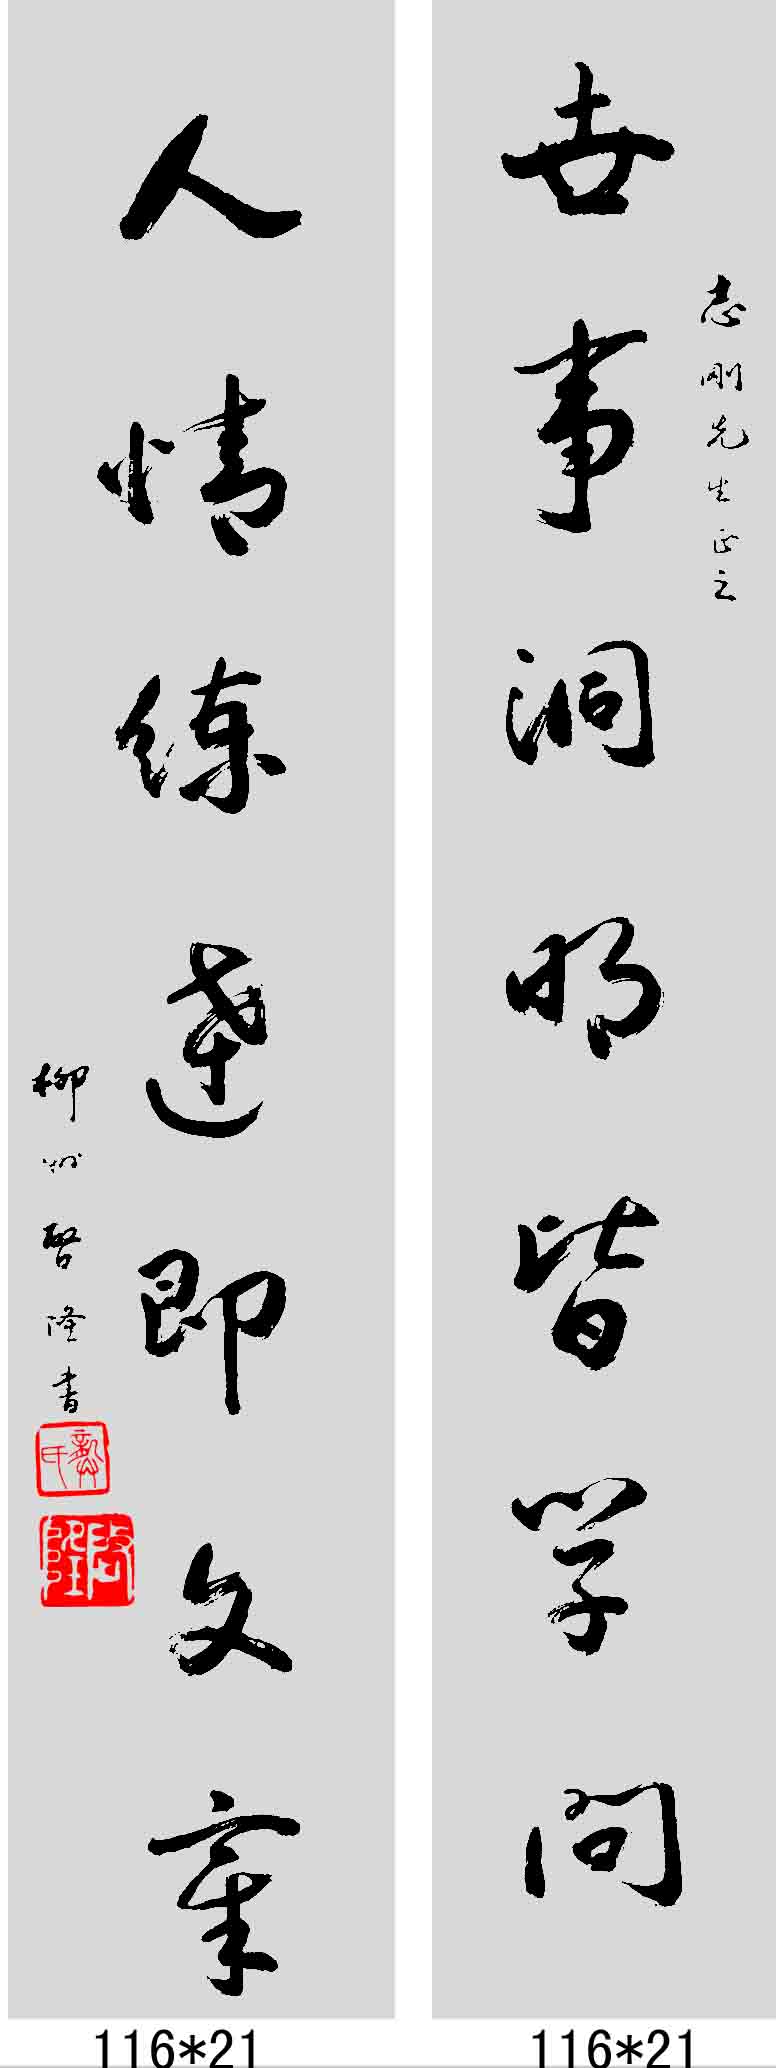 志刚先生正之
世事洞明皆学问
人情练達即文章
柳州啟隆书
116*21
116*21